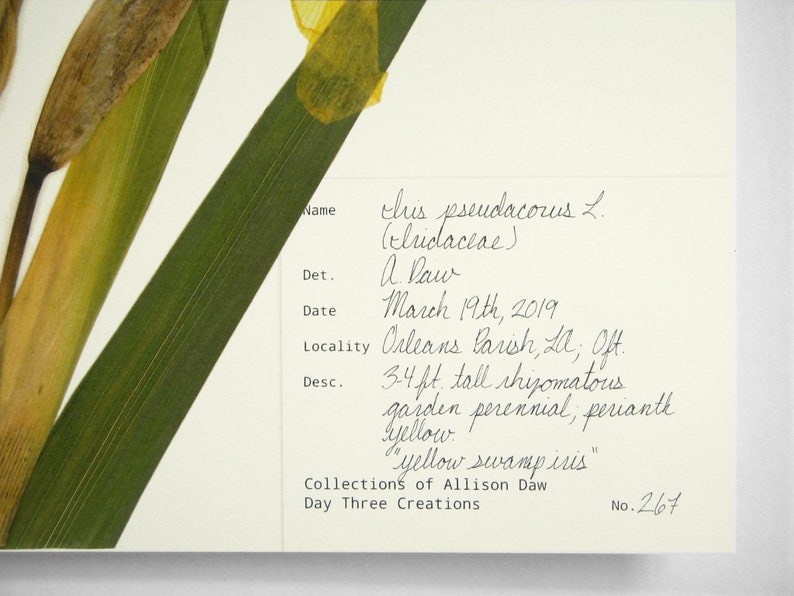 Name Iris pseudacorus L.
(Iridaceae)
Det. A. Daw
Date March 19th, 2019
Locality Orleans Parish, LA; 0ft.
Desc. 3-4 ft. tall rhizomatous
garden perennial; perianth
yellow.
"yellow swamp iris"
Collections of Allison Daw
Day Three Creations
No. 267